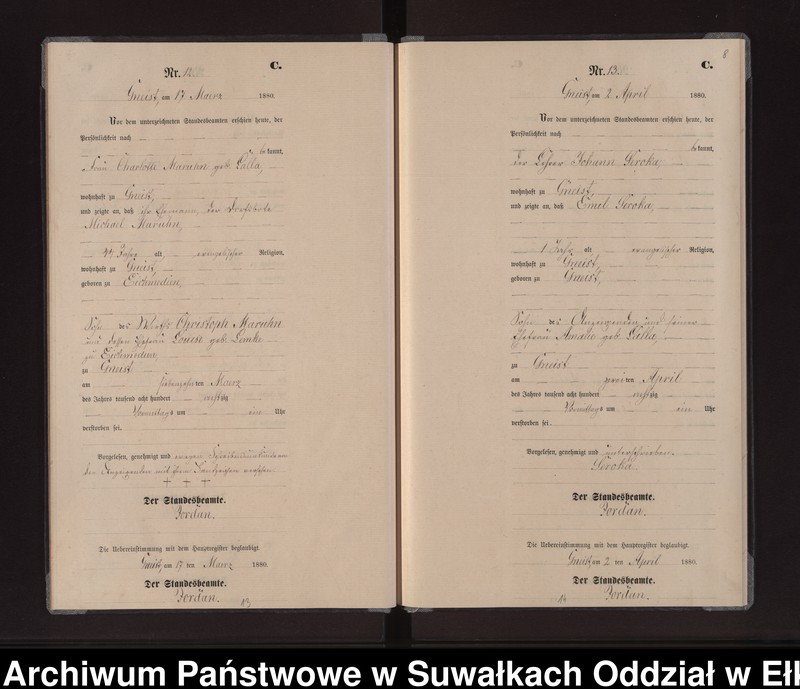 Nr. 12.
C.
Gneist, am 17 Maerz 1880.
Vor dem unterzeichneten Standesbeamten erschien heute, der
Persönlichkeit nach
be kannt,
Frau Charlotte Maruhn geb. Lalla,
wohnhaft zu Gneist,
und zeigte an, daß ihr Ehemann, der
Michael Maruhn,
44 Jahr alt evangelischer Religion,
wohnhaft zu Gneist,
geboren zu Eichmedien,
Sohn des Wirth Christoph Maruhn
und dessen Ehefrau Louise geb.
zu Eichmedien,
zu Gneist
am siebenzehnten Maerz
des Jahres tausend acht hundert achtzig
Vormittags um ein Uhr
verstorben sei.
Vorgelesen, genehmigt und wegen Schreibensunkunde von
der Anzeigenden mit ihrem Handzeichen versehen.
+ + +
Der Standesbeamte.
Jordan.
Die Uebereinstimmung mit dem Hauptregister beglaubigt.
Gneist, am 17 ten Maerz 1880.
Der Standesbeamte.
Jordan.
13
8
Nr. 13.
C.
Gneist, am 2 April 1880.
Vor dem unterzeichneten Standesbeamten erschien heute, der
Persönlichkeit nach
be kannt,
der Lehrer Johann Seroka,
wohnhaft zu Gneist,
und zeigte an, daß Emil Seroka,
1 Jahr alt evangelischer Religion,
wohnhaft zu Gneist,
geboren zu Gneist,
Sohn des Anzeigenden und seiner
Ehefrau Amalie geb. Lalla,
zu Gneist
am zweiten April
des Jahres tausend acht hundert achtzig
Vormittags um ein Uhr
verstorben sei.
Vorgelesen, genehmigt und unterschrieben.
Seroka.
Der Standesbeamte.
Jordan.
Die Uebereinstimmung mit dem Hauptregister beglaubigt.
Gneist, am 2 ten April 1880.
Der Standesbeamte.
Jordan.
14
Archiwum Państwowe w Suwałkach Oddział w Ełk